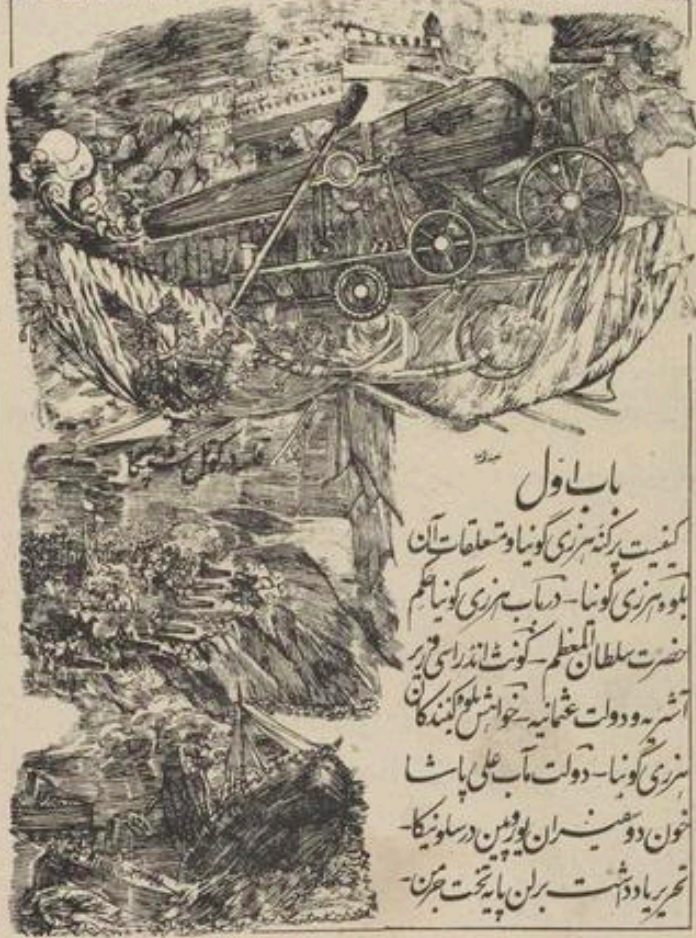 باب اول
کیفیت پرگنه هرزی گونیا و متعلقات آن
بلوه هرزی گونیا - در باب هرزی گونیا حکم
حضرت سلطان المعظم - کونت اندراسی وزیر
آشریه و دولت عثمانیه - خواهش بلوه کنندگان
هرزی گونیا - دولت مآب علی پاشا
خون دو سفیران یوروپین در سلونیکا -
تحریر یادداشت برلن پایه تخت جرمن -